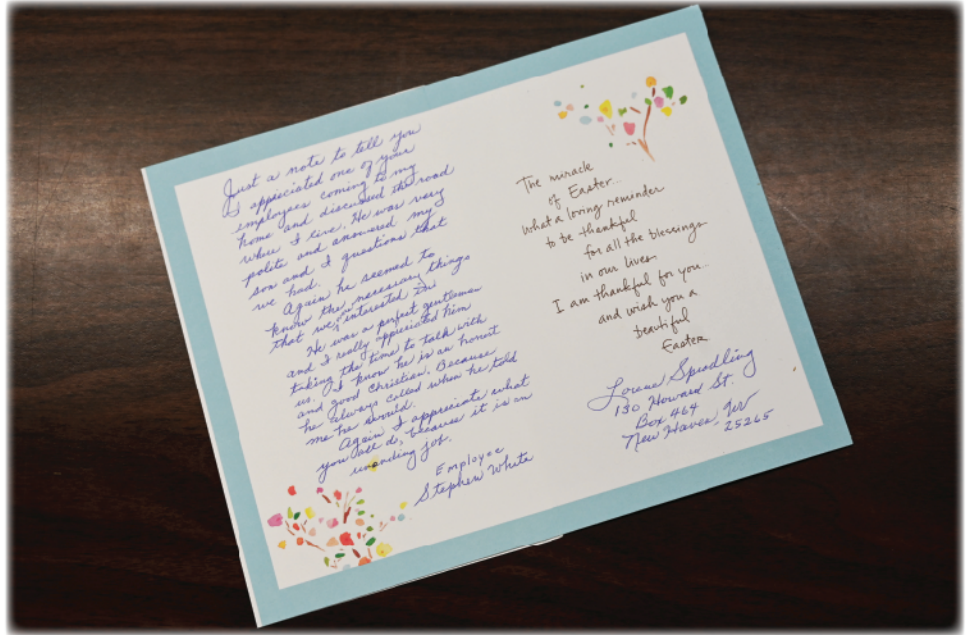 Just a note to tell you
I appreciated one of your
employees coming to my
home and discussed the road
where I live. He was very
polite and answered my
son and I questions that
we had.
Again he seemed to
know the necessary things
that we interested in
He was a perfect gentleman
and I really appreciated him
taking the time to talk with
us. I know he is an honest
and good Christian. Because
he always called when he told
me he would.
Again I appreciate what
you all do, because it is an
unending job.
Employee
Stephen White
The miracle
of Easter...
what a loving reminder
to be thankful
for all the blessings
in our lives.
I am thankful for you...
and wish you a
beautiful
Easter
Spradling
130 Howard St.
Box 464
New Haven, WV
25265